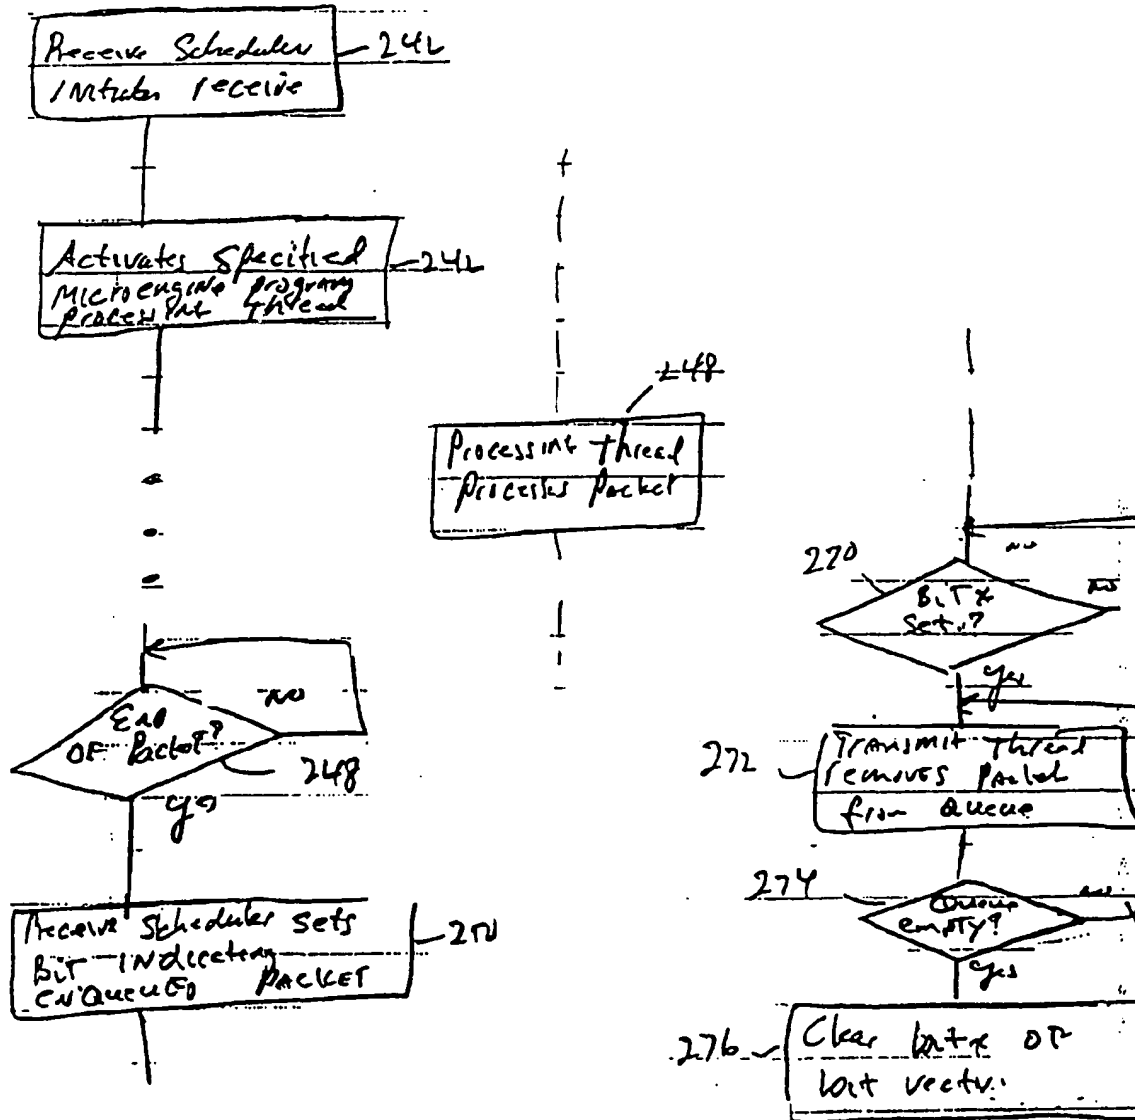 Receive Scheduler
Initiates receive
242
Activates Specified
Microengine program
processing thread
242
248
Processing thread
Processes packet
End
OF Packet?
NO
248
yes
Receive Scheduler Sets
Bit indicating
enqueued PACKET
no
270
Bit x
Set.?
NO
yes
272
Transmit thread
removes packet
from Queue
274
Queue
empty?
no
yes
276
Clear bit x of
bit vector